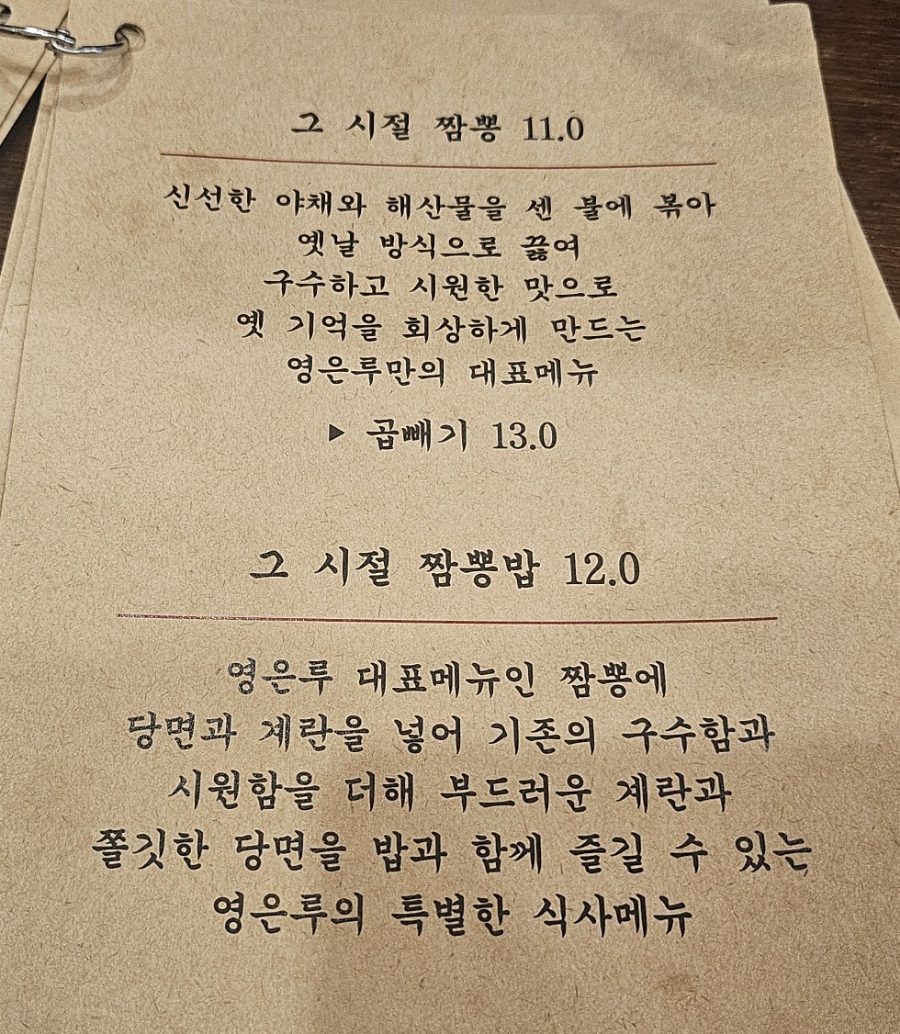 그 시절 짬뽕 11.0
신선한 야채와 해산물을 센 불에 볶아
옛날 방식으로 끓여
구수하고 시원한 맛으로
옛 기억을 회상하게 만드는
영은루만의 대표메뉴
▶ 곱빼기 13.0
그 시절 짬뽕밥 12.0
영은루 대표메뉴인 짬뽕에
당면과 계란을 넣어 기존의 구수함과
시원함을 더해 부드러운 계란과
쫄깃한 당면을 밥과 함께 즐길 수 있는
영은루의 특별한 식사메뉴